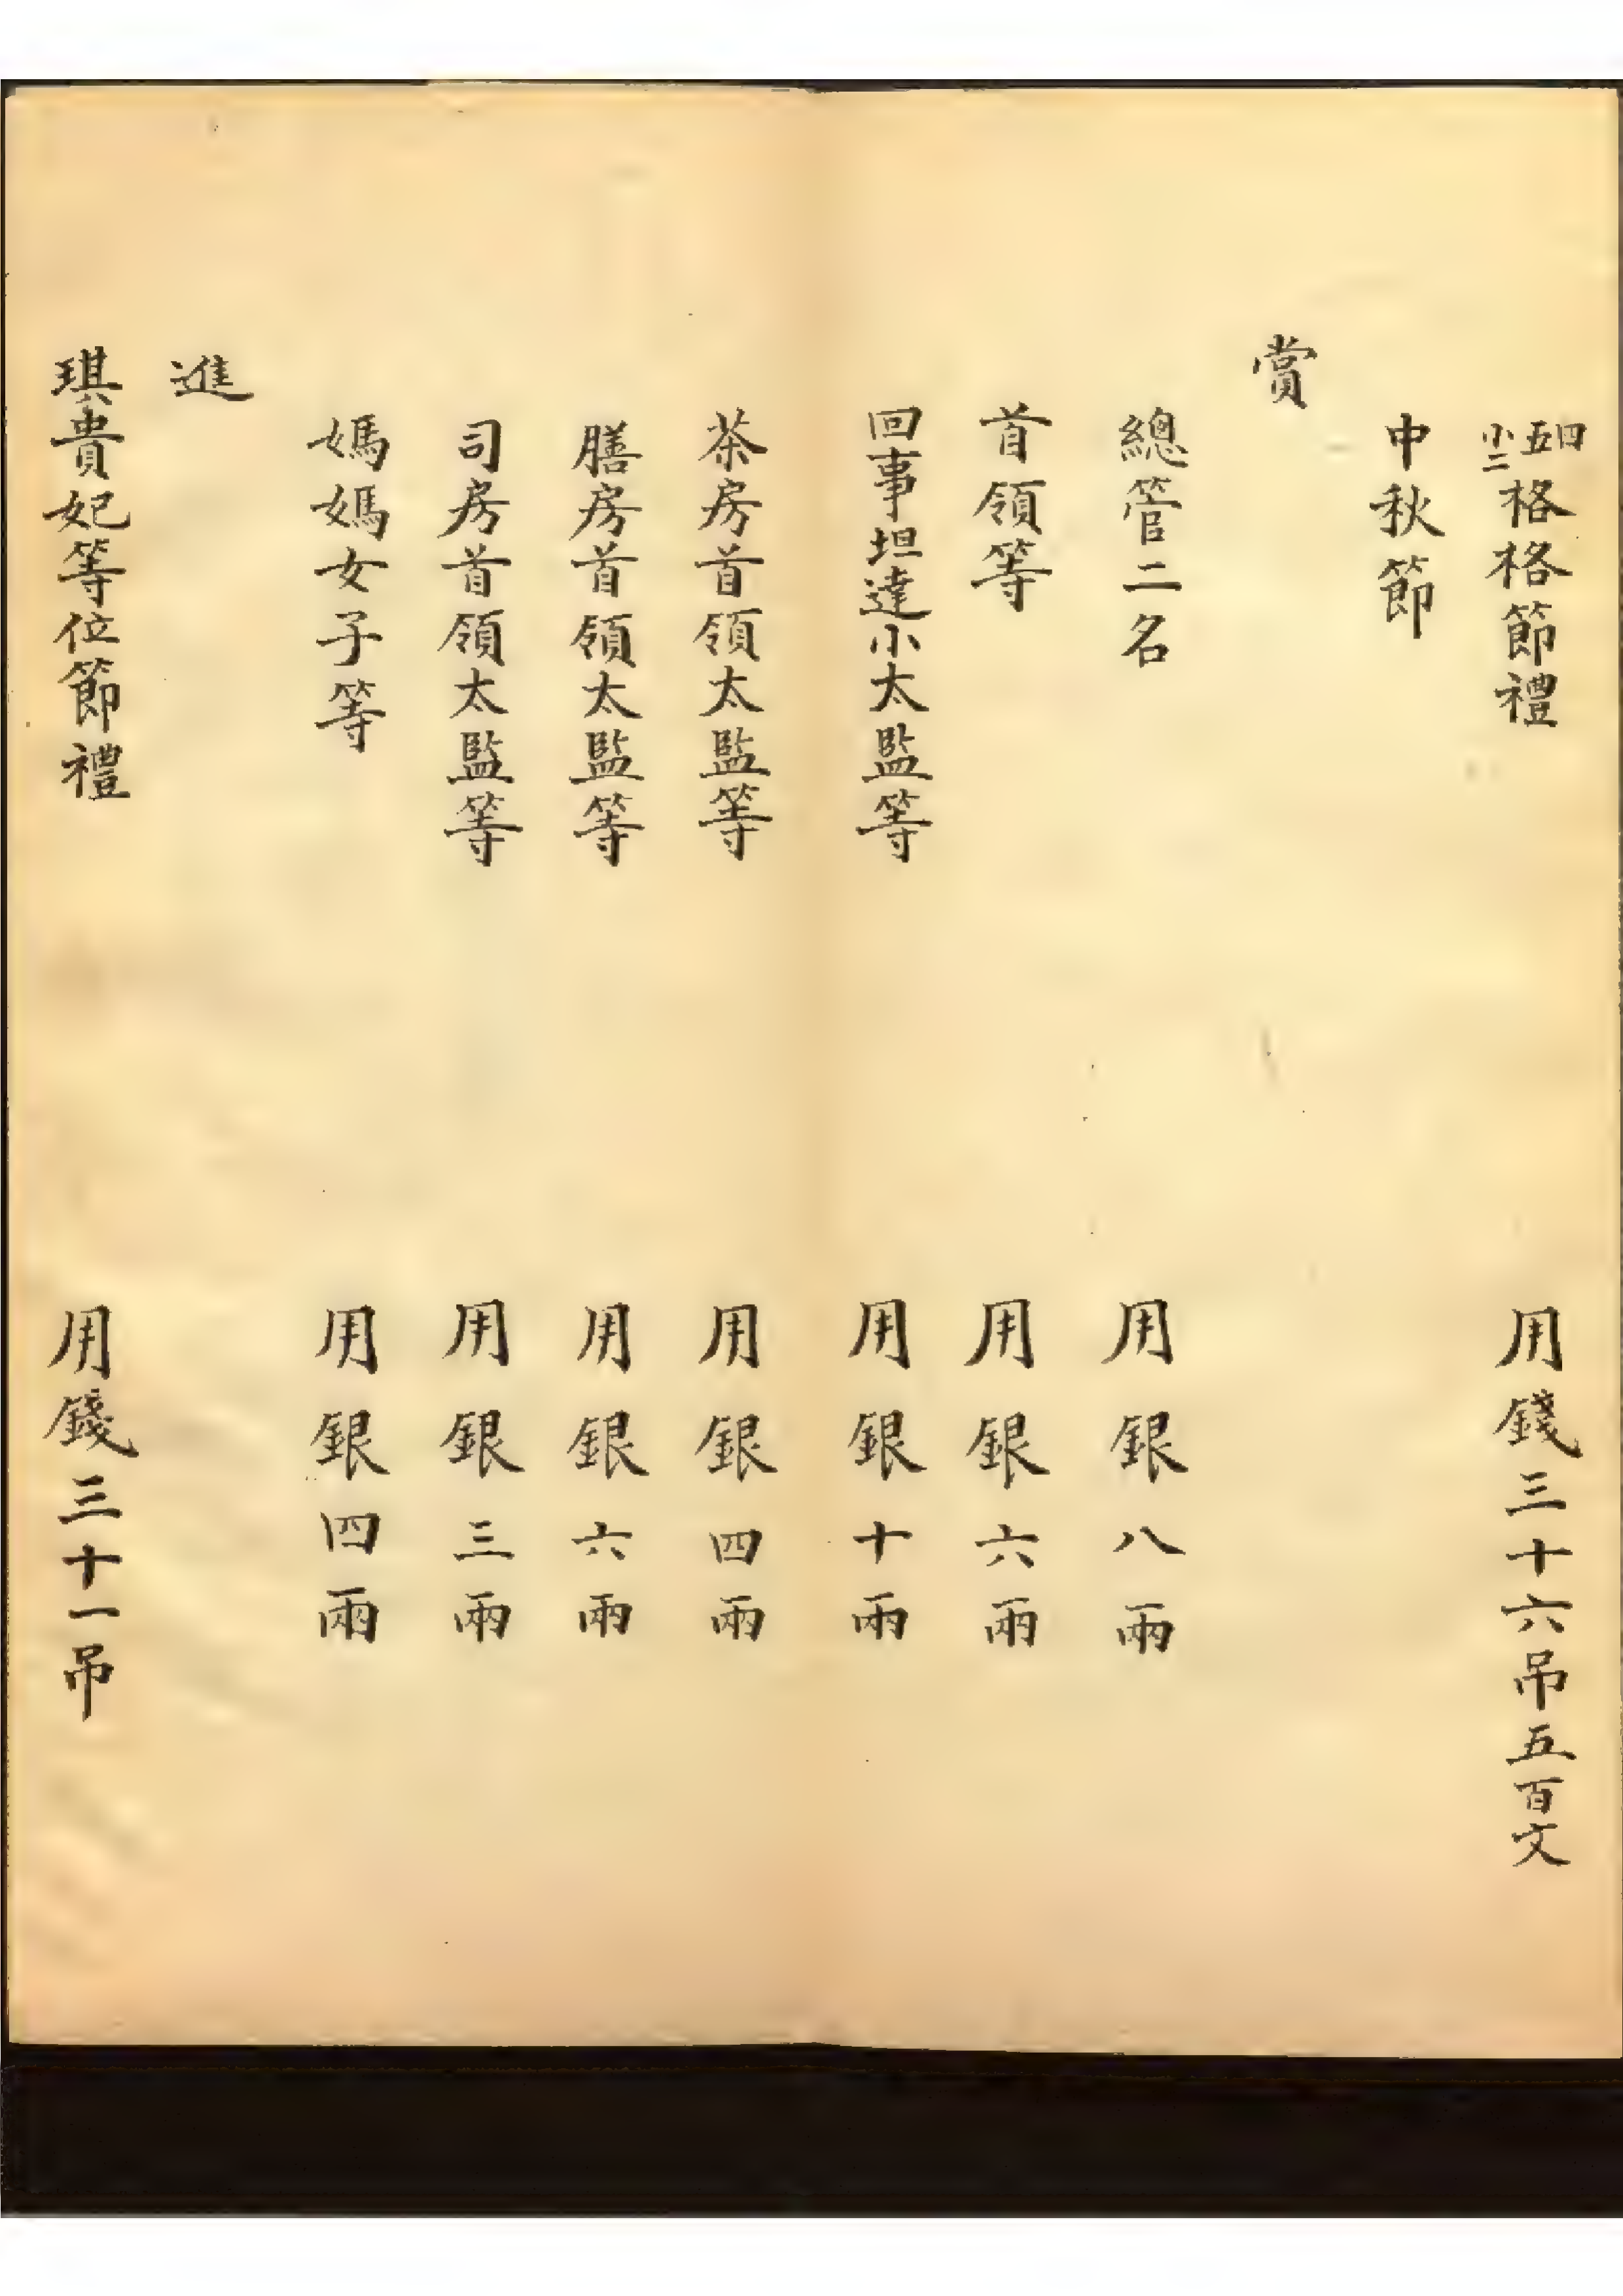 四五小二格格節禮 用錢三十六吊五百文
中秋節
賞
總管二名 用銀八兩
首領等 用銀六兩
回事坦達小太監等 用銀十兩
茶房首領太監等 用銀四兩
膳房首領太監等 用銀六兩
司房首領太監等 用銀三兩
媽媽女子等 用銀四兩
進
琪貴妃等位節禮 用錢三十一吊